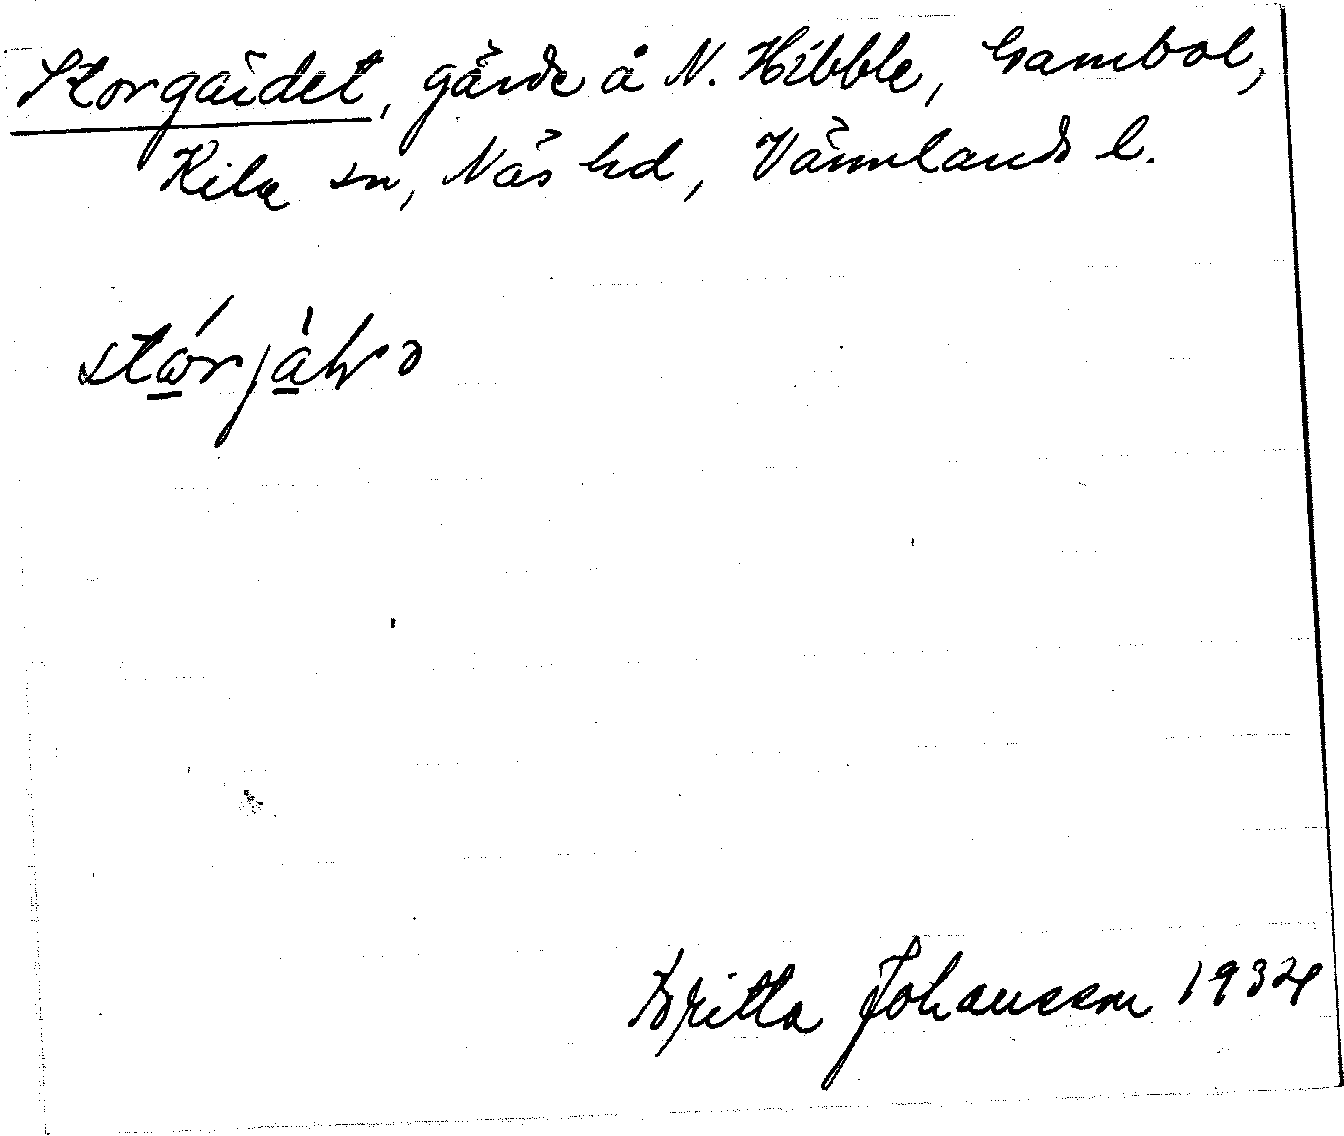 Storgärdet, gärde å N. Hibble, hambol,
Kila sn, Näs hd, Värmlands l.
Britta Johansson 1934